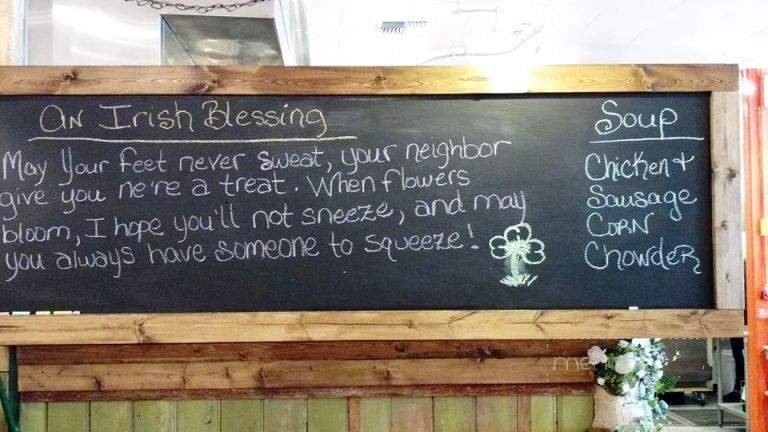 An Irish Blessing
May your feet never sweat, your neighbor
give you ne're a treat. When flowers
bloom, I hope you'll not sneeze, and may
you always have someone to squeeze!
Soup
Chicken +
Sausage
Corn
Chowder